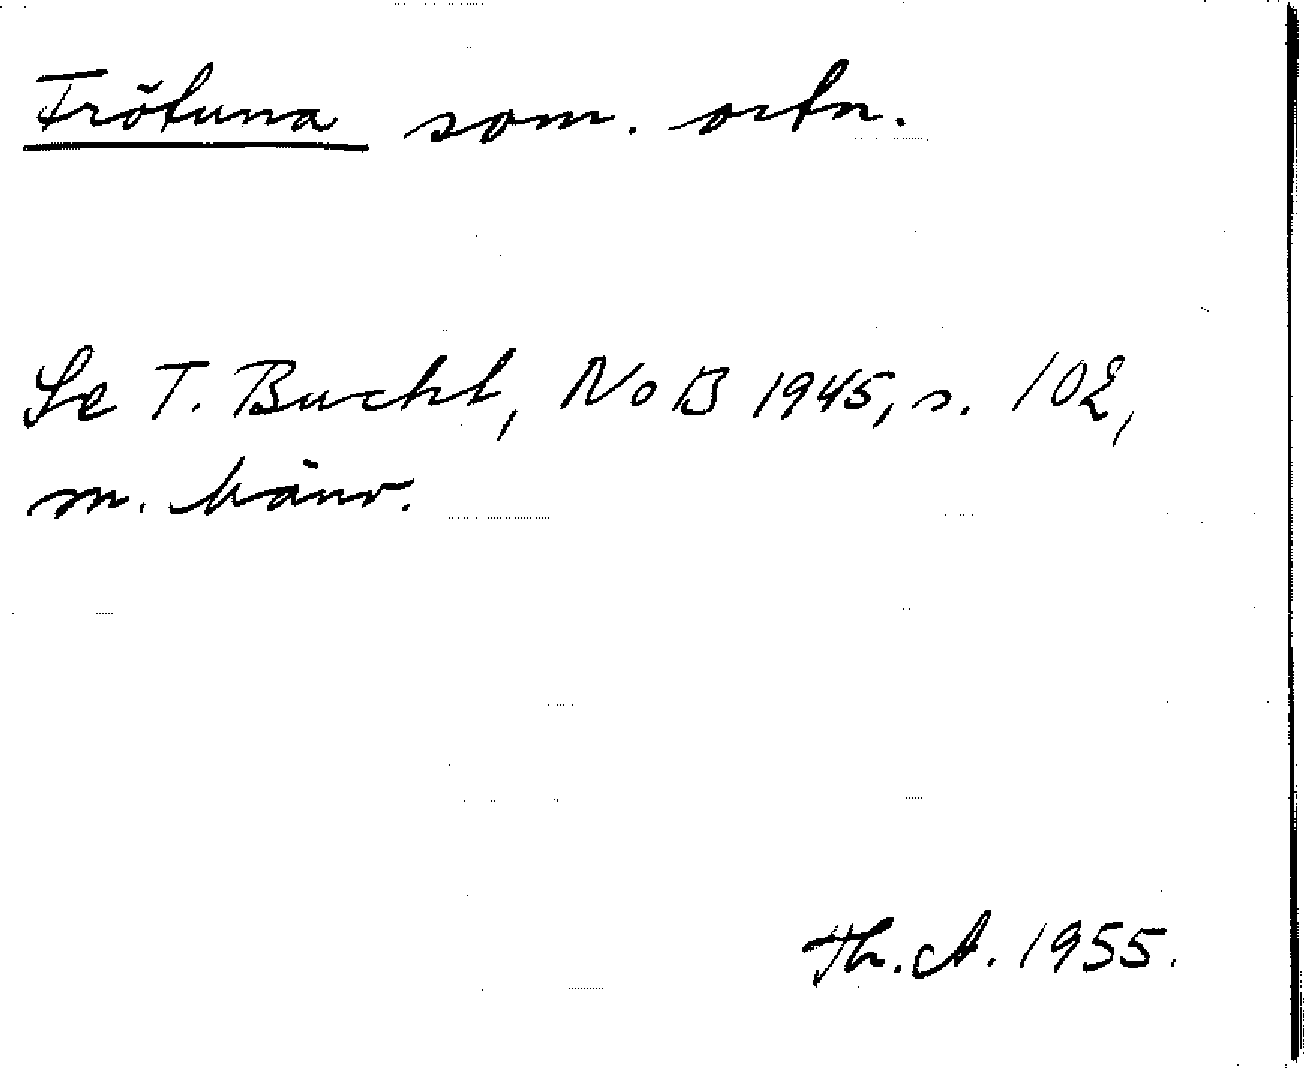 Trötuna som. ortn.
Se T. Bucht, NoB 1945, s. 102,
m. hänv.
Th. A. 1955.